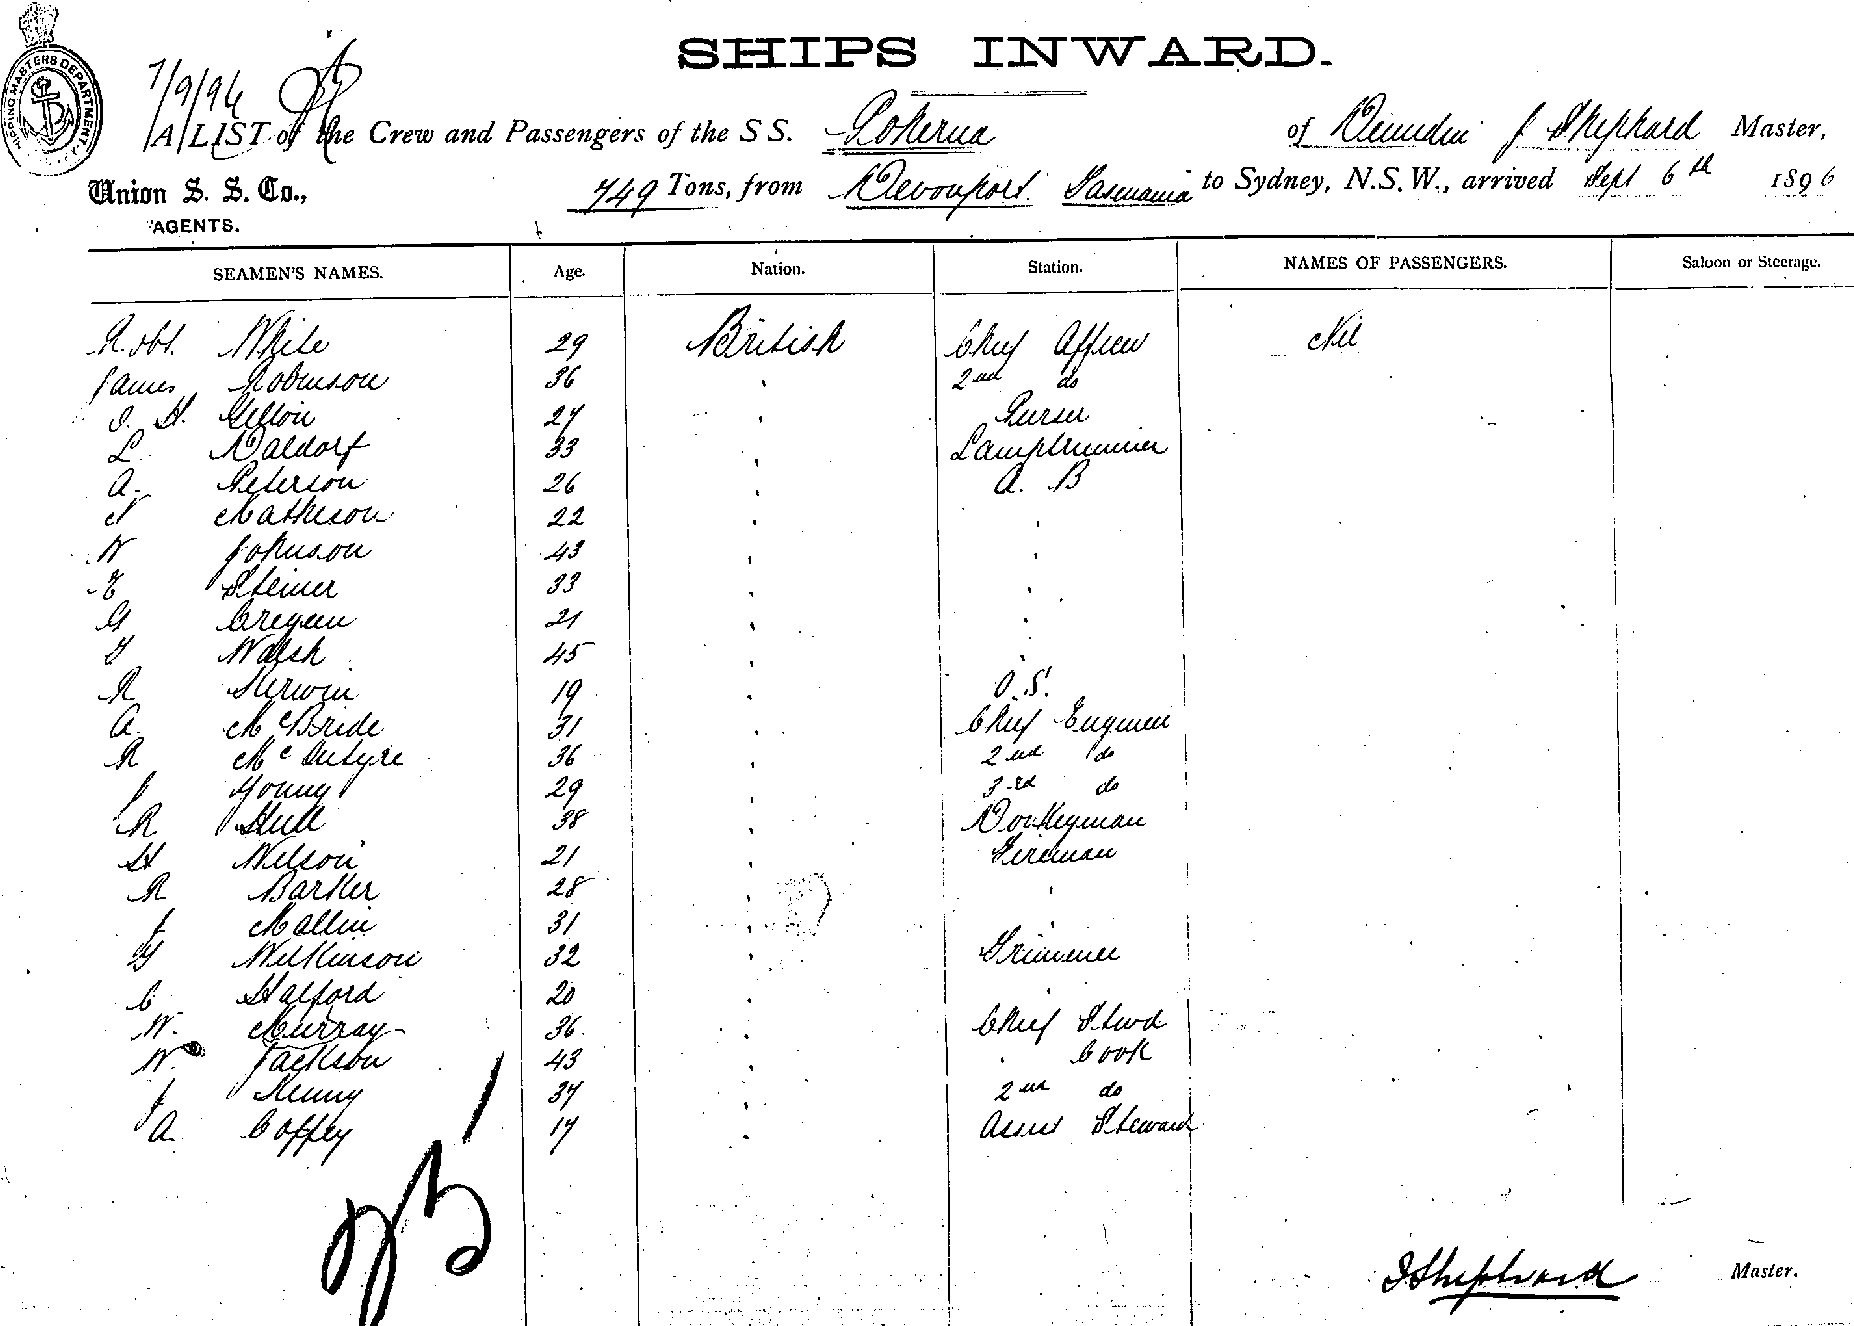 SHIPS INWARD.
SHIPPING MASTERS DEPARTMENT
7/9/96
A LIST of the Crew and Passengers of the S S. Pokerua of Dunedin J Shephard Master,
Union S. S. Co., 749 Tons, from Devonport Tasmania to Sydney, N.S.W., arrived Sept 6th 1896
AGENTS.
SEAMEN'S NAMES. Age. Nation. Station. NAMES OF PASSENGERS. Saloon or Steerage.
Robt. White 29 British Chief Officer Nil
James Robinson 36 " 2nd do
H. 27 " Purser
L Waldorf 33 " Lamptrimmer
A. Peterson 26 " A. B
N Matheson 22 " "
W Johnson 43 " "
E Steiner 33 " "
G Cregeen 21 " "
T Walsh 45 " "
R Sherwin 19 " O.S.
A. McBride 31 " Chief Engineer
R McIntyre 36 " 2nd do
J Young 29 " 3rd do
R Hull 38 " Donkeyman
H Wilson 21 " Fireman
R Barker 28 " "
J Mallin 31 " "
G Wilkinson 32 " Trimmer
C Halford 20 " "
W. Murray 36 " Chief Stwd
W. Jackson 43 " " Cook
J Kenny 37 " 2nd do
A. Coffey 17 " Assist Steward
J Shephard Master.